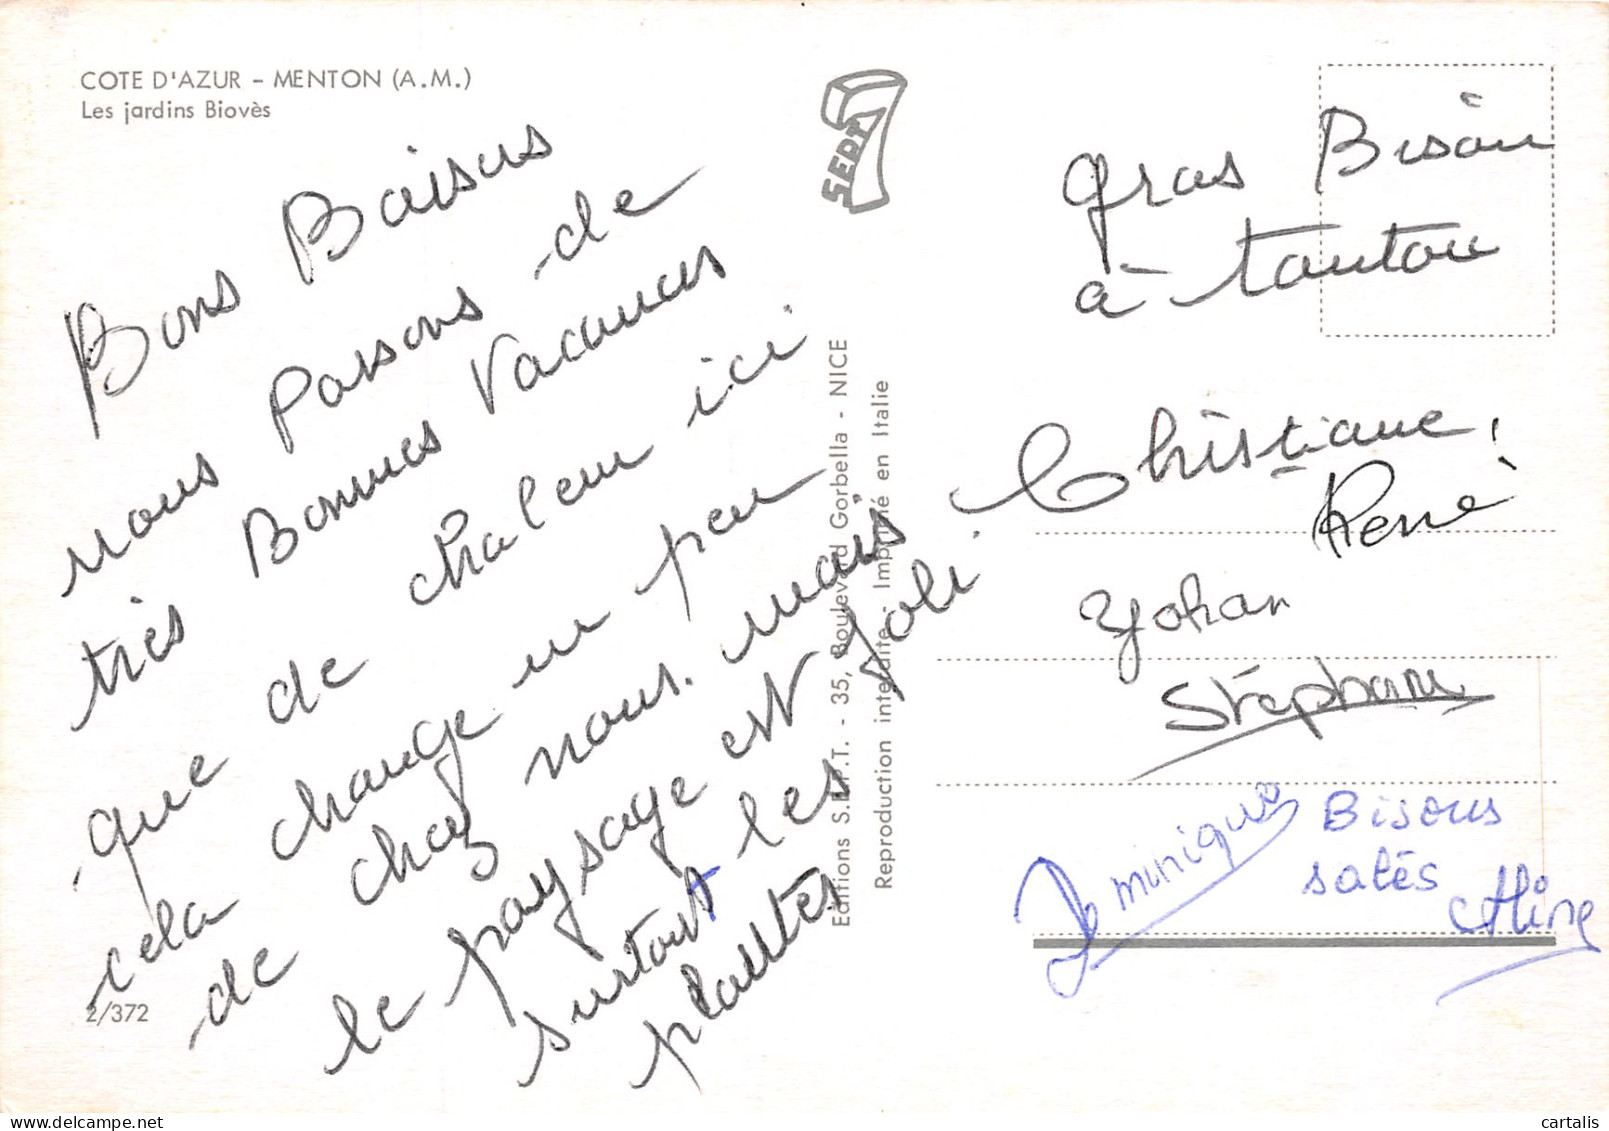 COTE D'AZUR - MENTON (A.M.)
Les jardins Biovès
Bons Baisers
nous passons de
très Bonnes Vacances
que de chaleur ici
cela change un peu
de chez nous. mais
le paysage est Joli.
surtout les
plantes
2/372
SEPT
7
Editions S.E.P.T. - 35, Boulevard Gorbella - NICE
Reproduction interdite - Imprimé en Italie
gros Bisou
à tonton
Christiane,
René
Yohan
Stéphane
Dominique
Bisous
salés
Aline
cartalis